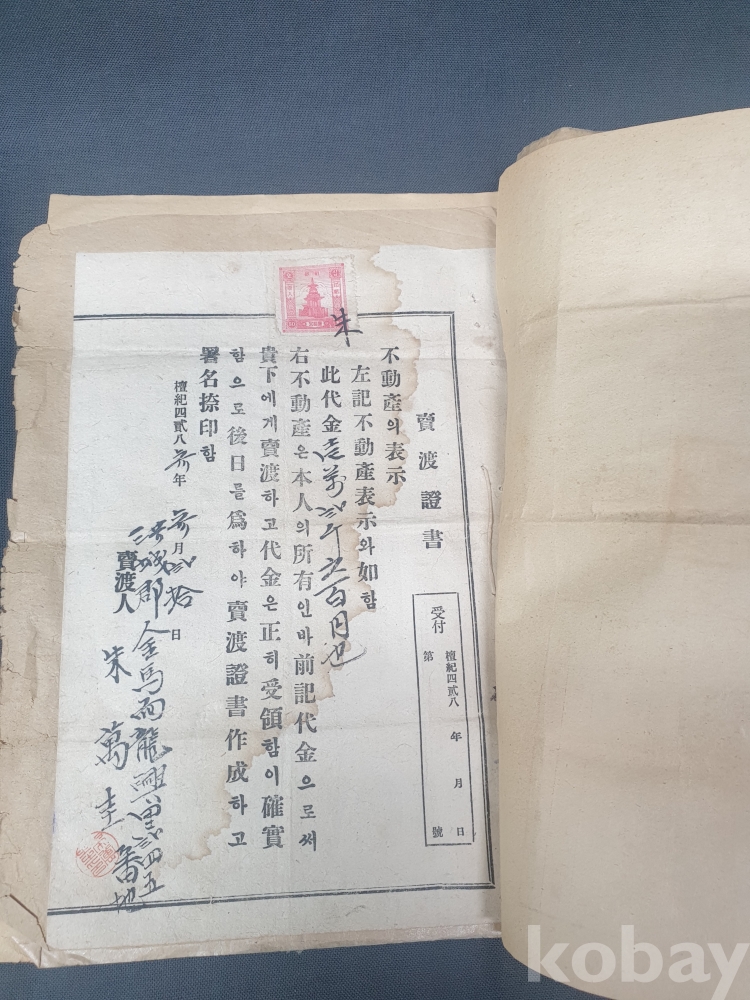 賣渡證書
受付
檀紀四貳八 年 月 日
第 號
不動產의表示
左記不動產表示와如함
此代金壹萬貳千五百円也
右不動產은本人의所有인바前記代金으로써
貴下에게賣渡하고代金은正히受領함이確實
함으로後日를爲하야賣渡證書作成하고
署名捺印함
檀紀四貳八 年 月 貳拾 日
郡金馬面龍興里 貳四五番地
賣渡人 朱萬圭
朱
kobay